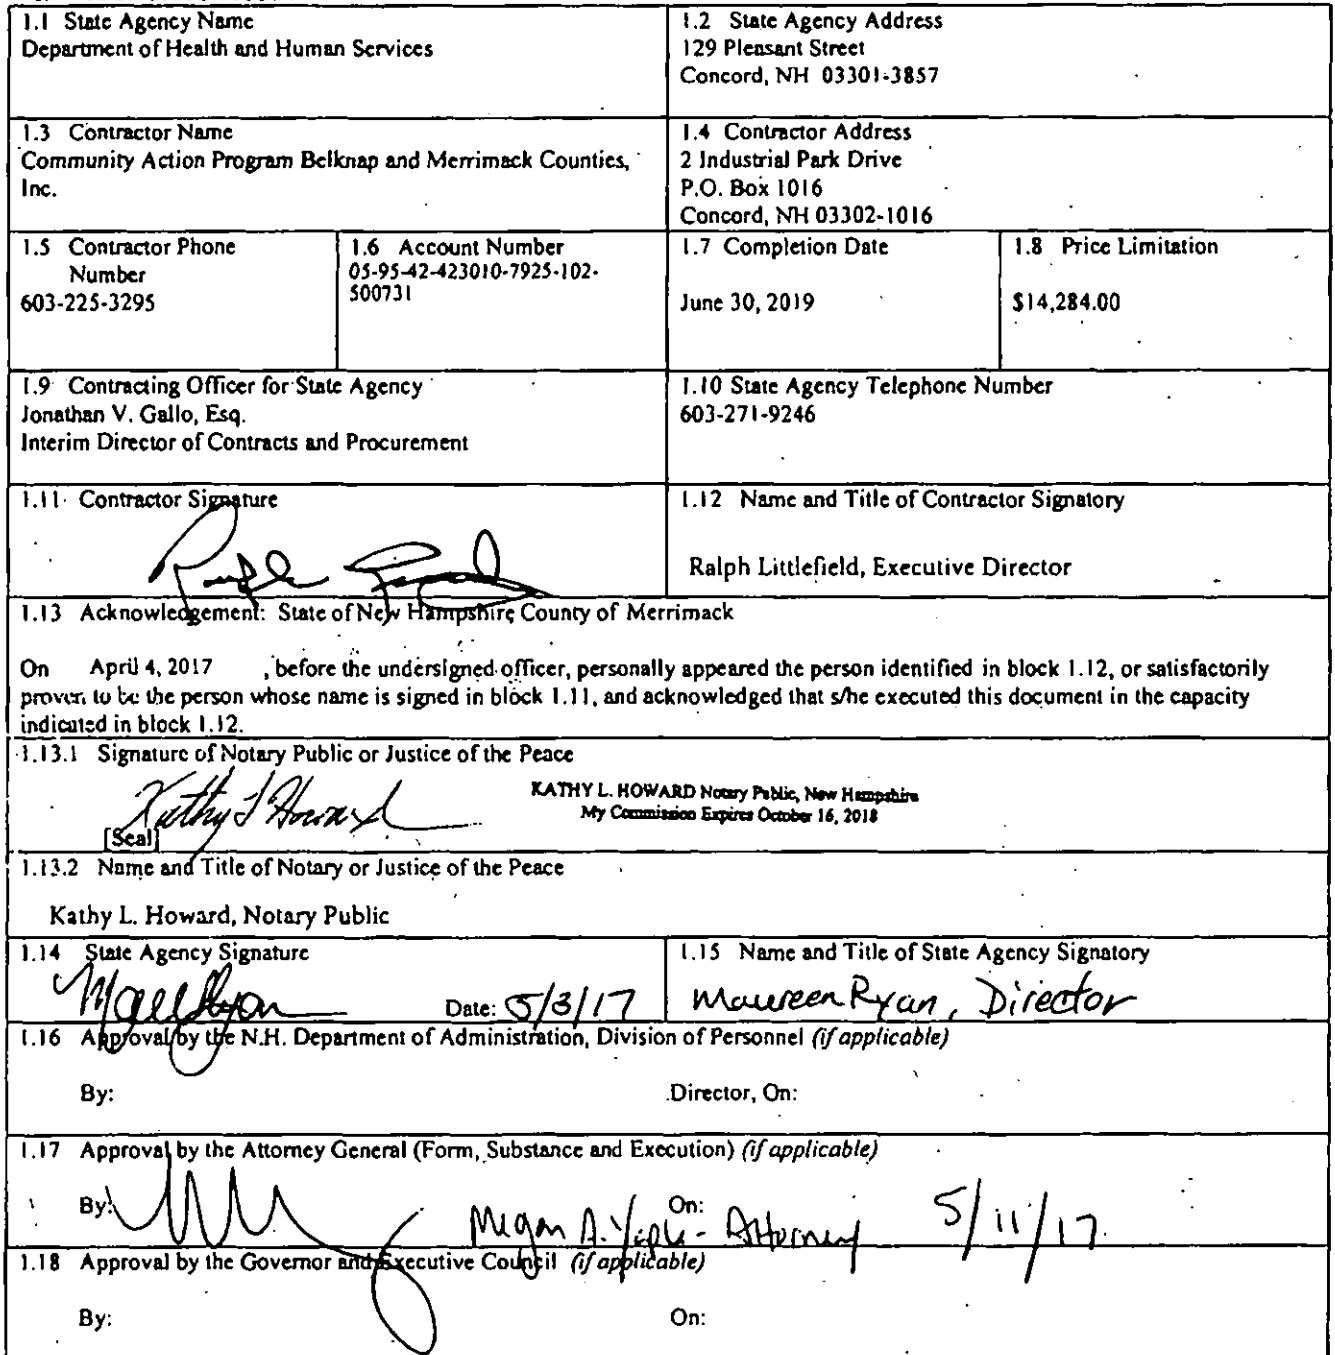 1.1 State Agency Name
Department of Health and Human Services
1.2 State Agency Address
129 Pleasant Street
Concord, NH 03301-3857
1.3 Contractor Name
Community Action Program Belknap and Merrimack Counties,
Inc.
1.4 Contractor Address
2 Industrial Park Drive
P.O. Box 1016
Concord, NH 03302-1016
1.5 Contractor Phone
Number
603-225-3295
1.6 Account Number
05-95-42-423010-7925-102-
500731
1.7 Completion Date
June 30, 2019
1.8 Price Limitation
$14,284.00
1.9 Contracting Officer for State Agency
Jonathan V. Gallo, Esq.
Interim Director of Contracts and Procurement
1.10 State Agency Telephone Number
603-271-9246
1.11 Contractor Signature
1.12 Name and Title of Contractor Signatory
Ralph Littlefield, Executive Director
1.13 Acknowledgement: State of New Hampshire County of Merrimack
On April 4, 2017 , before the undersigned officer, personally appeared the person identified in block 1.12, or satisfactorily
proven to be the person whose name is signed in block 1.11, and acknowledged that s/he executed this document in the capacity
indicated in block 1.12.
1.13.1 Signature of Notary Public or Justice of the Peace
Kathy L Howard
KATHY L. HOWARD Notary Public, New Hampshire
My Commission Expires October 16, 2018
[Seal]
1.13.2 Name and Title of Notary or Justice of the Peace
Kathy L. Howard, Notary Public
1.14 State Agency Signature
Date: 5/3/17
1.15 Name and Title of State Agency Signatory
Maureen Ryan, Director
1.16 Approval by the N.H. Department of Administration, Division of Personnel (if applicable)
By: Director, On:
1.17 Approval by the Attorney General (Form, Substance and Execution) (if applicable)
By: On:
Megan A. - Attorney 5/11/17
1.18 Approval by the Governor and Executive Council (if applicable)
By: On: